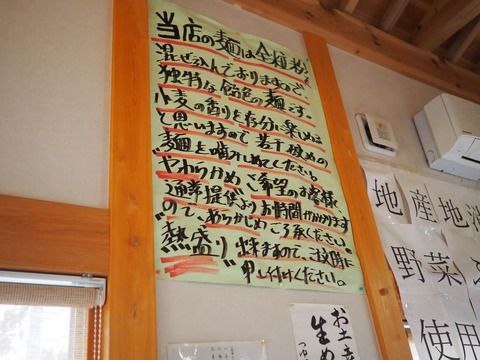 当店の麺は全粒粉
混ぜ込んでおりますので、
独特な飴色の麺です。
小麦の香りを存分に楽しめる
と思いますので若干硬めの
麺を噛みしめてください。
"やわらかめ"ご希望のお客様、
通常提供よりお時間がかかります
ので、あらかじめご了承ください。
"熱盛り"出来ますので、ご注文時に
申し付けください。
地産地消
野菜
使用
お土産
生め